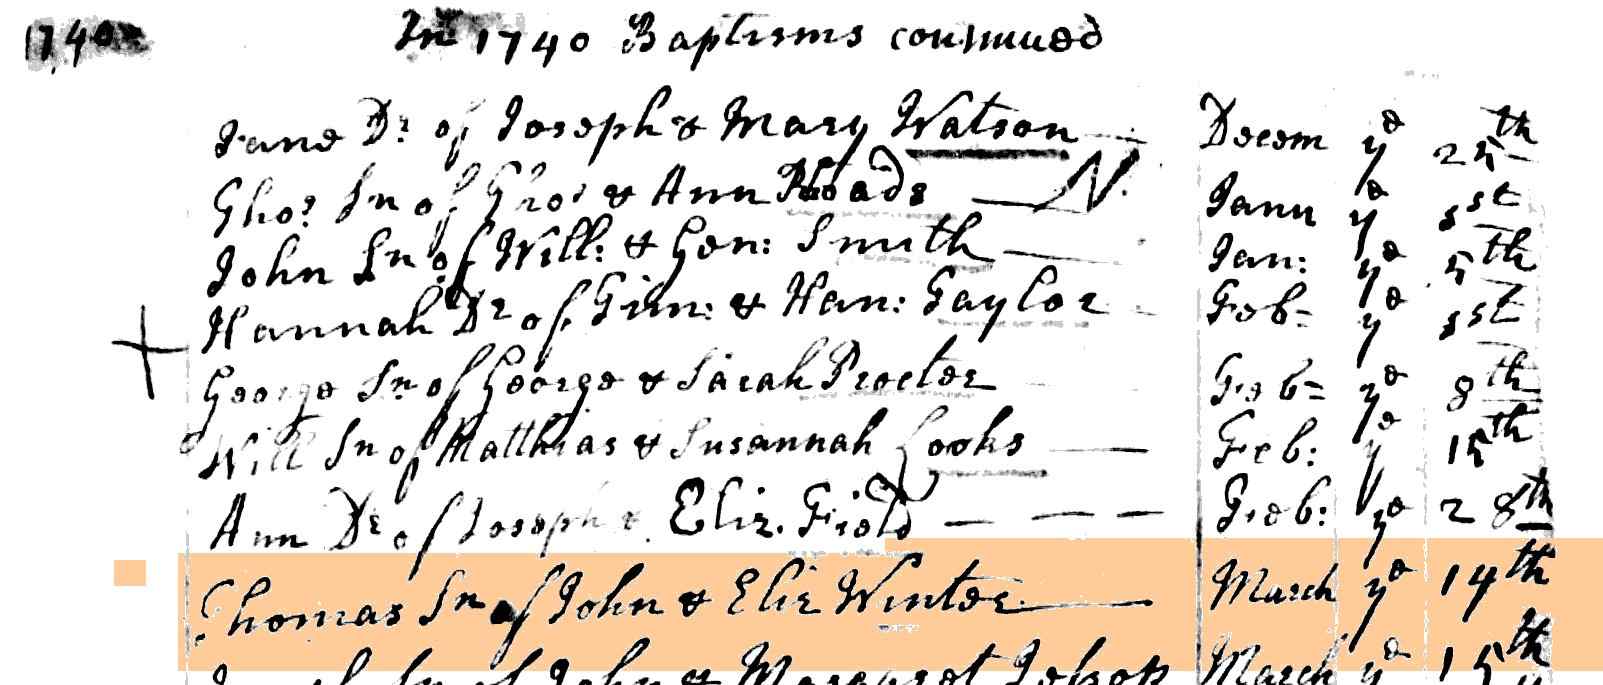 1740 In 1740 Baptisms continued
Jane Dr of Joseph & Mary Watson Decem ye 25th
Thos Sn of Thos & Ann Hoads N. Janu ye 1st
John Sn of Will: & Gen: Smith Jan: ye 5th
Hannah Dr of Tim: & Han: Taylor Feb= ye 1st
George Sn of George & Sarah Procter Feb= ye 8th
Will Sn of Matthias & Susannah Cooks Feb: ye 15th
Ann Dr of Joseph & Eliz. Field Feb: ye 28th
Thomas Sn of John & Eliz Winter March ye 14th
Sn of John & Margaret March ye 15th